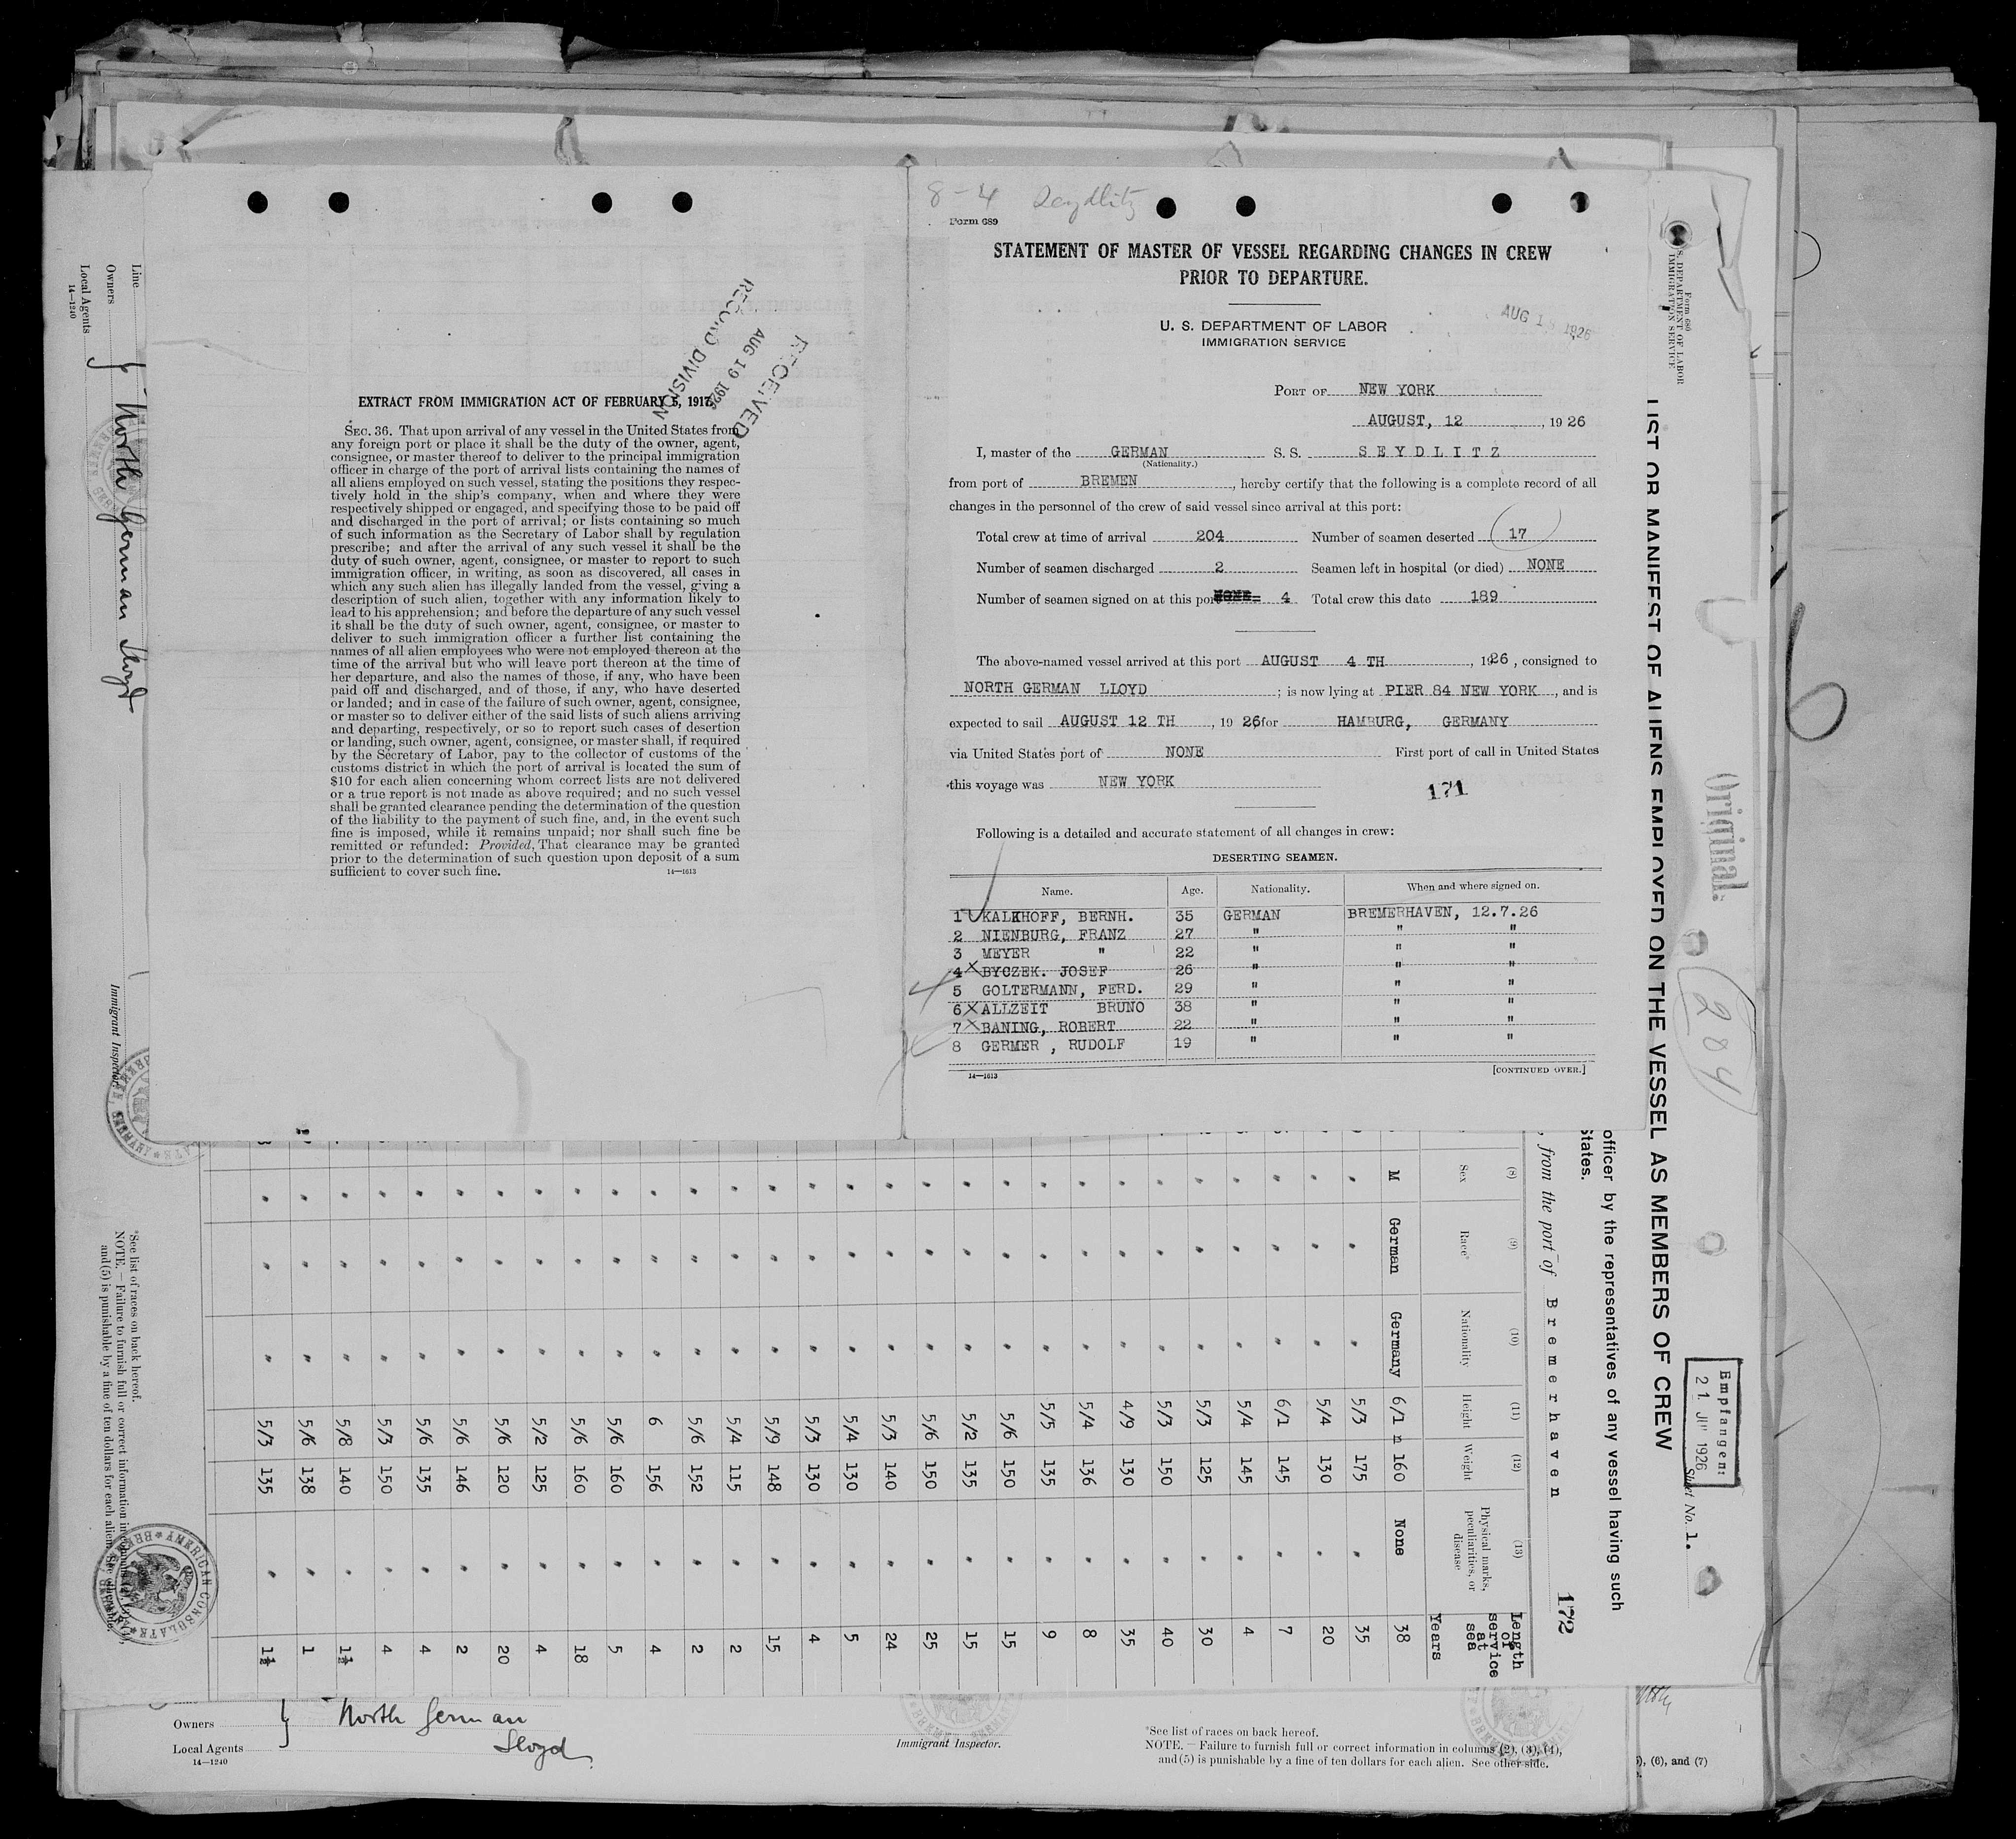 8-4 Seydlitz
Form 689
STATEMENT OF MASTER OF VESSEL REGARDING CHANGES IN CREW
PRIOR TO DEPARTURE.
U. S. DEPARTMENT OF LABOR
IMMIGRATION SERVICE
AUG 1 1926
PORT OF NEW YORK
AUGUST, 12, 1926
I, master of the GERMAN S. S. SEYDLITZ
(Nationality.)
from port of BREMEN, hereby certify that the following is a complete record of all
changes in the personnel of the crew of said vessel since arrival at this port:
Total crew at time of arrival 204 Number of seamen deserted 17
Number of seamen discharged 2 Seamen left in hospital (or died) NONE
Number of seamen signed on at this port NONE 4 Total crew this date 189
The above-named vessel arrived at this port AUGUST 4 TH, 1926, consigned to
NORTH GERMAN LLOYD; is now lying at PIER 84 NEW YORK, and is
expected to sail AUGUST 12 TH, 1926 for HAMBURG, GERMANY
via United States port of NONE First port of call in United States
this voyage was NEW YORK
171
Following is a detailed and accurate statement of all changes in crew:
DESERTING SEAMEN.
Name. Age. Nationality. When and where signed on.
1 KALKHOFF, BERNH. 35 GERMAN BREMERHAVEN, 12.7.26
2 NIENBURG, FRANZ 27 " " "
3 MEYER " 22 " " "
4 X BYCZEK. JOSEF 26 " " "
5 GOLTERMANN, FERD. 29 " " "
6 X ALLZEIT BRUNO 38 " " "
7 X BANING, ROBERT 22 " " "
8 GERMER , RUDOLF 19 " " "
14—1613 [CONTINUED OVER.]
RECEIVED
AUG 19 1926
RECORD DIVISION
EXTRACT FROM IMMIGRATION ACT OF FEBRUARY 5, 1917.
SEC. 36. That upon arrival of any vessel in the United States from
any foreign port or place it shall be the duty of the owner, agent,
consignee, or master thereof to deliver to the principal immigration
officer in charge of the port of arrival lists containing the names of
all aliens employed on such vessel, stating the positions they respec-
tively hold in the ship's company, when and where they were
respectively shipped or engaged, and specifying those to be paid off
and discharged in the port of arrival; or lists containing so much
of such information as the Secretary of Labor shall by regulation
prescribe; and after the arrival of any such vessel it shall be the
duty of such owner, agent, consignee, or master to report to such
immigration officer, in writing, as soon as discovered, all cases in
which any such alien has illegally landed from the vessel, giving a
description of such alien, together with any information likely to
lead to his apprehension; and before the departure of any such vessel
it shall be the duty of such owner, agent, consignee, or master to
deliver to such immigration officer a further list containing the
names of all alien employees who were not employed thereon at the
time of the arrival but who will leave port thereon at the time of
her departure, and also the names of those, if any, who have been
paid off and discharged, and of those, if any, who have deserted
or landed; and in case of the failure of such owner, agent, consignee,
or master so to deliver either of the said lists of such aliens arriving
and departing, respectively, or so to report such cases of desertion
or landing, such owner, agent, consignee, or master shall, if required
by the Secretary of Labor, pay to the collector of customs of the
customs district in which the port of arrival is located the sum of
$10 for each alien concerning whom correct lists are not delivered
or a true report is not made as above required; and no such vessel
shall be granted clearance pending the determination of the question
of the liability to the payment of such fine, and, in the event such
fine is imposed, while it remains unpaid; nor shall such fine be
remitted or refunded: Provided, That clearance may be granted
prior to the determination of such question upon deposit of a sum
sufficient to cover such fine.
14—1613
Form 680
U. S. DEPARTMENT OF LABOR
IMMIGRATION SERVICE
Original.
204
Empfangen:
21. JUL 1926
Sheet No. 1.
LIST OR MANIFEST OF ALIENS EMPLOYED ON THE VESSEL AS MEMBERS OF CREW
officer by the representatives of any vessel having such
States.
172
, from the port of Bremerhaven
(8) (9) (10) (11) (12) (13)
Sex Race* Nationality Height Weight Physical marks, peculiarities, or disease Length of service at sea
Years
M German Germany 6/1 n 160 None 38
" " " 5/3 175 " 35
" " " 5/4 130 " 20
" " " 6/1 145 " 7
" " " 5/4 145 " 4
" " " 5/3 125 " 30
" " " 5/3 150 " 40
" " " 4/9 130 " 35
" " " 5/4 136 " 8
" " " 5/5 135 " 9
" " " 5/6 150 " 15
" " " 5/2 135 " 15
" " " 5/6 150 " 25
" " " 5/3 140 " 24
" " " 5/4 130 " 5
" " " 5/3 130 " 4
" " " 5/9 148 " 15
" " " 5/4 115 " 2
" " " 5/6 152 " 2
" " " 6 156 " 4
" " " 5/6 160 " 5
" " " 5/6 160 " 18
" " " 5/2 125 " 4
" " " 5/6 120 " 20
" " " 5/6 146 " 2
" " " 5/6 135 " 4
" " " 5/3 150 " 4
" " " 5/8 140 " 1½
" " " 5/6 138 " 1
" " " 5/3 135 " 1½
Line
Owners
Local Agents
14—1240
North German Lloyd
Immigrant Inspector.
*See list of races on back hereof.
NOTE. – Failure to furnish full or correct information in columns
and (5) is punishable by a fine of ten dollars for each alien. See other side.
AMERICAN CONSULATE BREMEN, GERMANY
Owners
Local Agents
14—1240
North German
Lloyd
Immigrant Inspector.
*See list of races on back hereof.
NOTE. – Failure to furnish full or correct information in columns (2), (3), (4),
and (5) is punishable by a fine of ten dollars for each alien. See other side.
, (6), and (7)